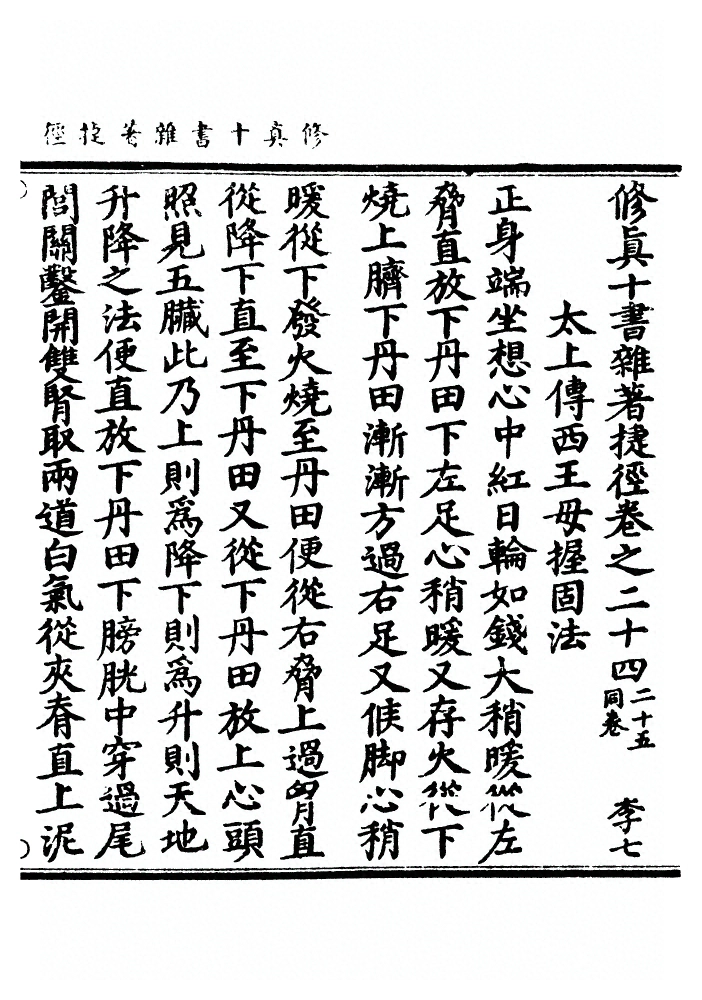 修真十書雜著捷徑
修真十書雜著捷徑卷之二十四二十五同卷 李七
太上傳西王母握固法
正身端坐想心中紅日輪如錢大稍暖從左
脅直放下丹田下左足心稍暖又存火從下
燒上臍下丹田漸漸方過右足又候脚心稍
暖從下發火燒至丹田便從右脅上過胷直
從降下直至下丹田又從下丹田放上心頭
照見五臟此乃上則爲降下則爲升則天地
升降之法便直放下丹田下膀胱中穿過尾
閭關鑿開雙腎取兩道白氣從夾脊直上泥